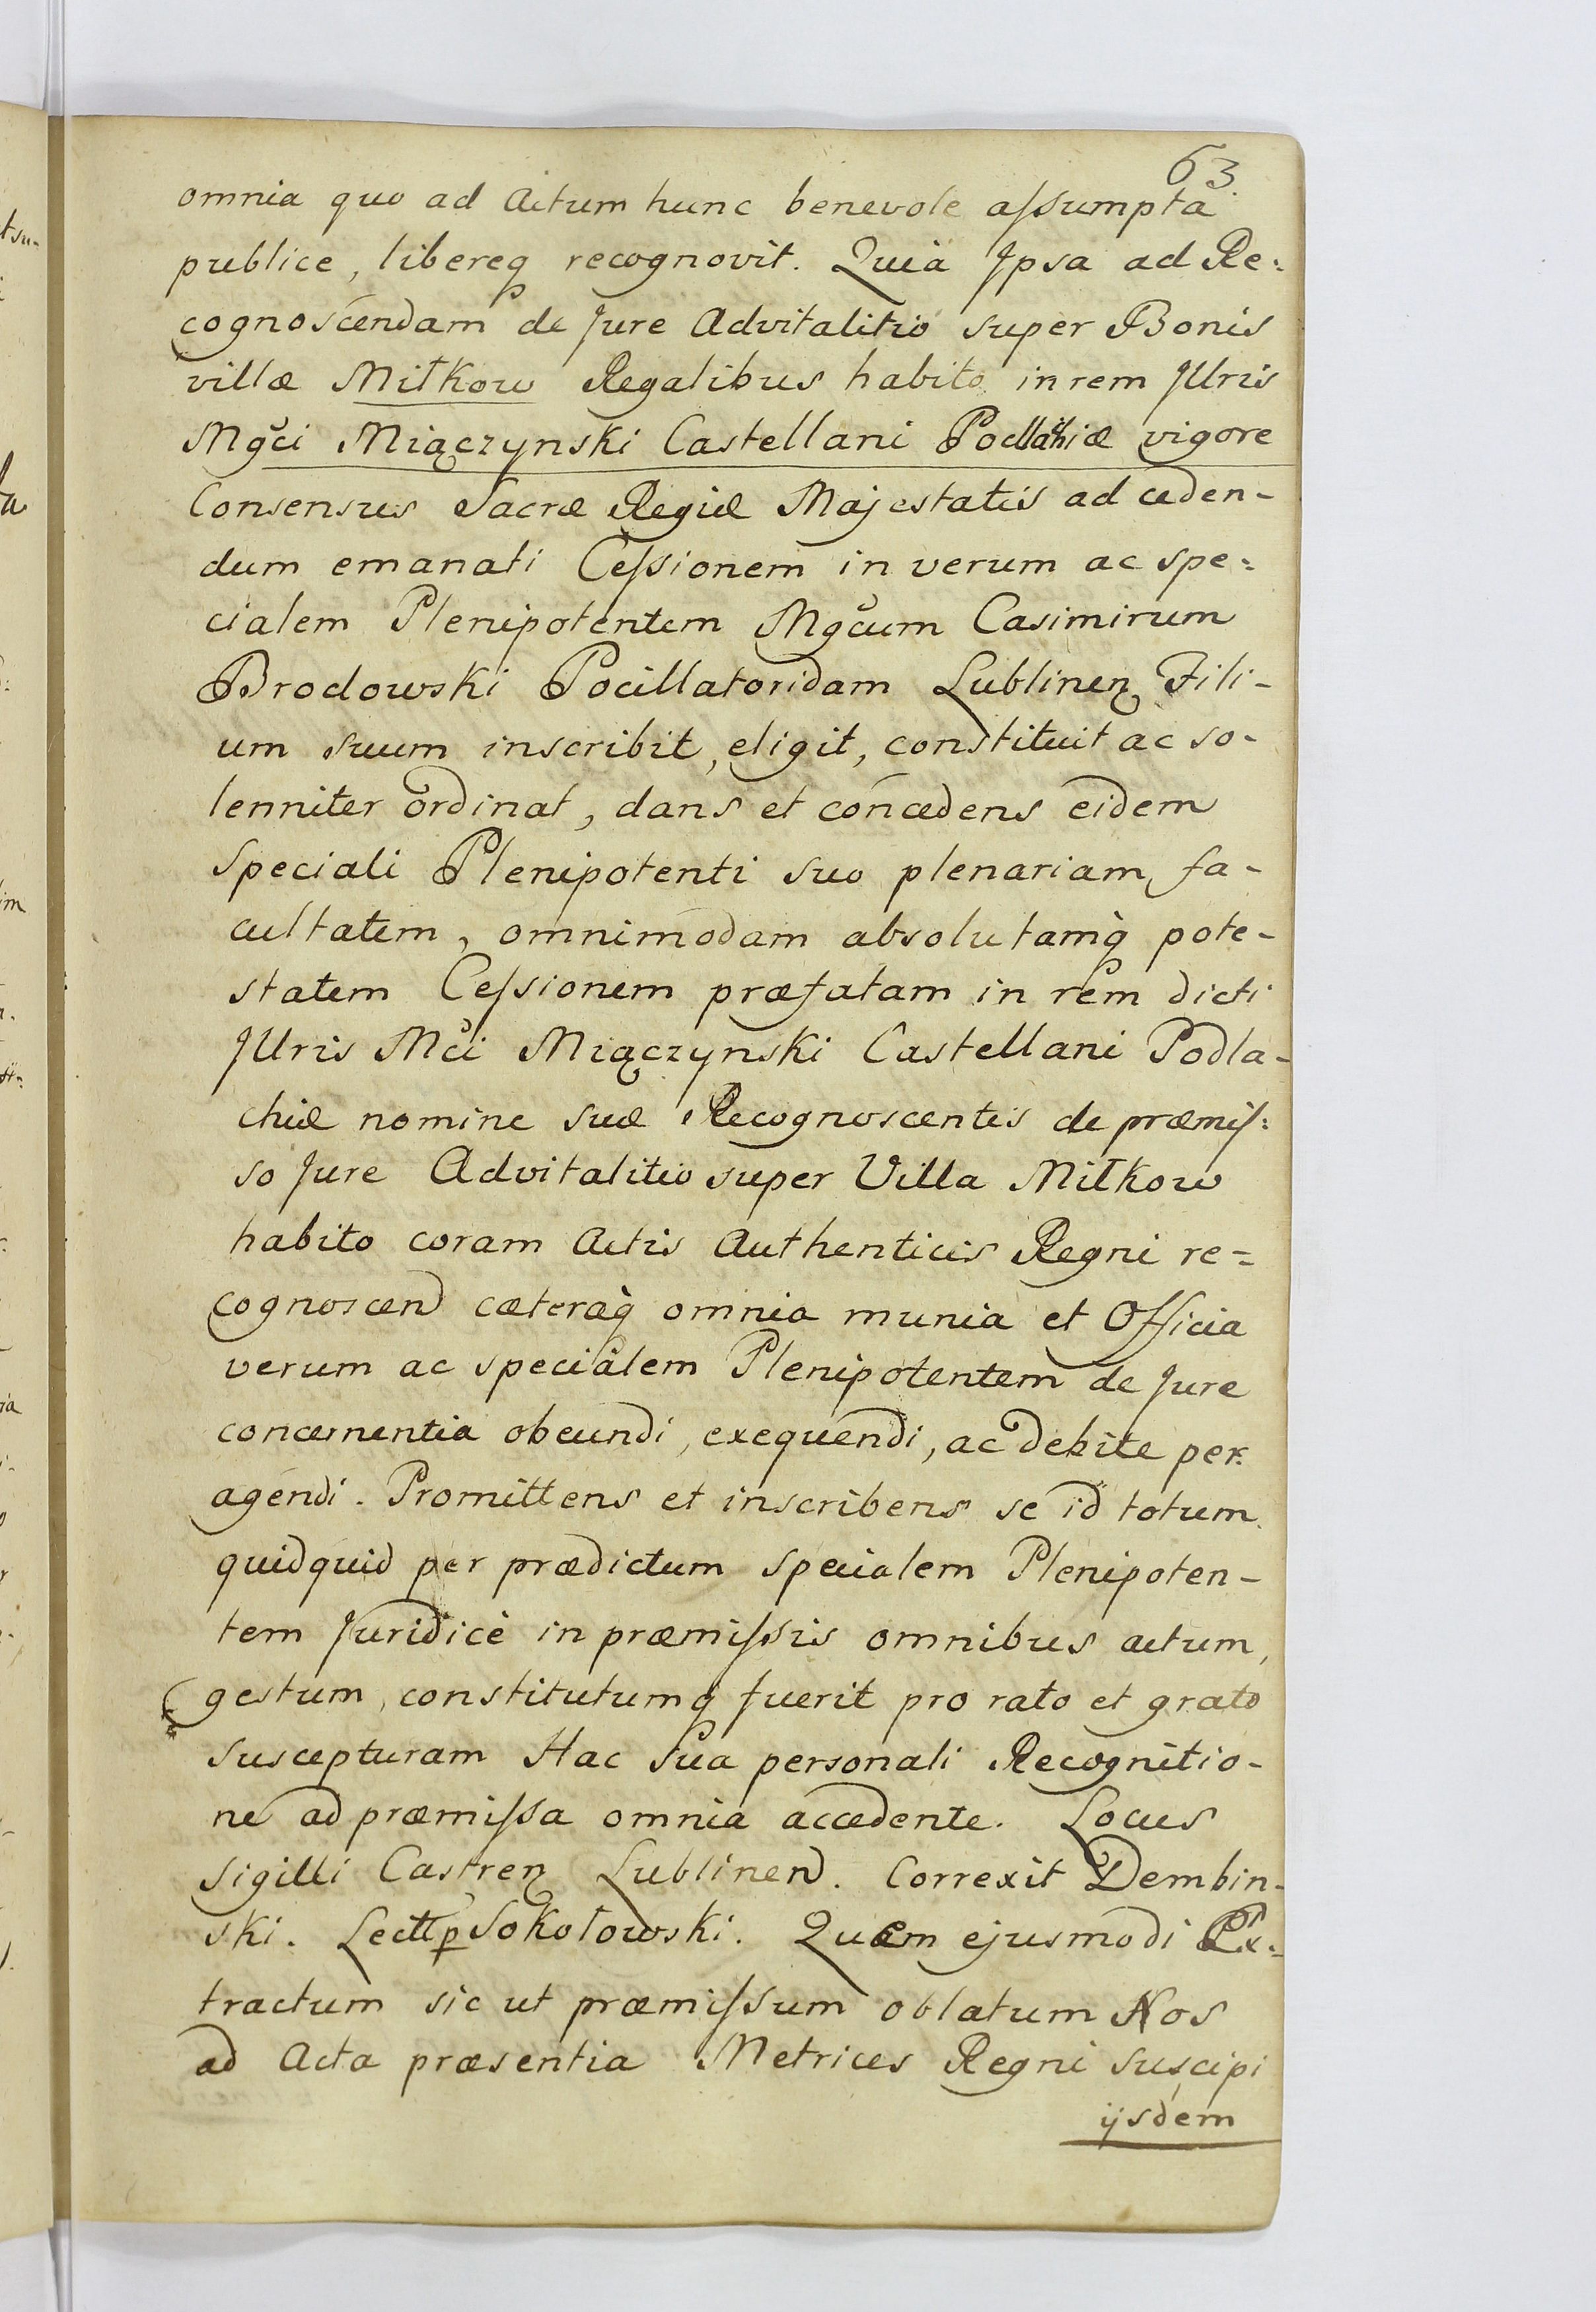 63.
omnia quo ad Actum hunc benevole aſsumpta
publice, libereq recognovit. Quia Ipsa ad Re:
cognoscendam de Jure Advitalitio super Bonis
villæ Miłkow Regalibus habito in rem Jllris
Mgci Miączynski Castellani Podlachiæ vigore
Consensus Sacræ Regiæ Majestatis ad ceden-
dum emanati Ceſsionem in verum ac spe:
cialem Plenipotentem Mgcum Casimirum
Brodowski Pocillatoridam Lublinen Fili-
um suum inscribit, eligit, constituit ac so-
lenniter ordinat, dans et concedens eidem
speciali Plenipotenti suo plenariam fa-
cultatem, omnimodam absolutamq pote-
statem Ceſsionem præfatam in rem dicti
Jllris Mci Miączynski Castellani Podla-
chiæ nomine suæ Recognoscentis de præmiſ:
so Jure Advitalitio super Villa Miłkow
habito coram Actis Authenticis Regni re-
cognoscend cæteraq omnia munia et Officia
verum ac specialem Plenipotentem de Jure
concernentia obeundi, exequendi, ac debite per:
agendi. Promittens et inscribens se id totum
quidquid per prædictum specialem Plenipoten-
tem Juridicè in præmiſsis omnibus actum,
gestum, constitutumq fuerit pro rato et grato
suscepturam Hac sua personali Recognitio-
ne ad præmiſsa omnia accedente. Locus
Sigilli Castren Lublinen. Correxit Dembin-
ski. Lectt p Sokołowski. Quem ejusmodi Ex:
tractum sic ut præmiſsum oblatum Nos
ad Acta præsentia Metrices Regni suscipi
ijsdem